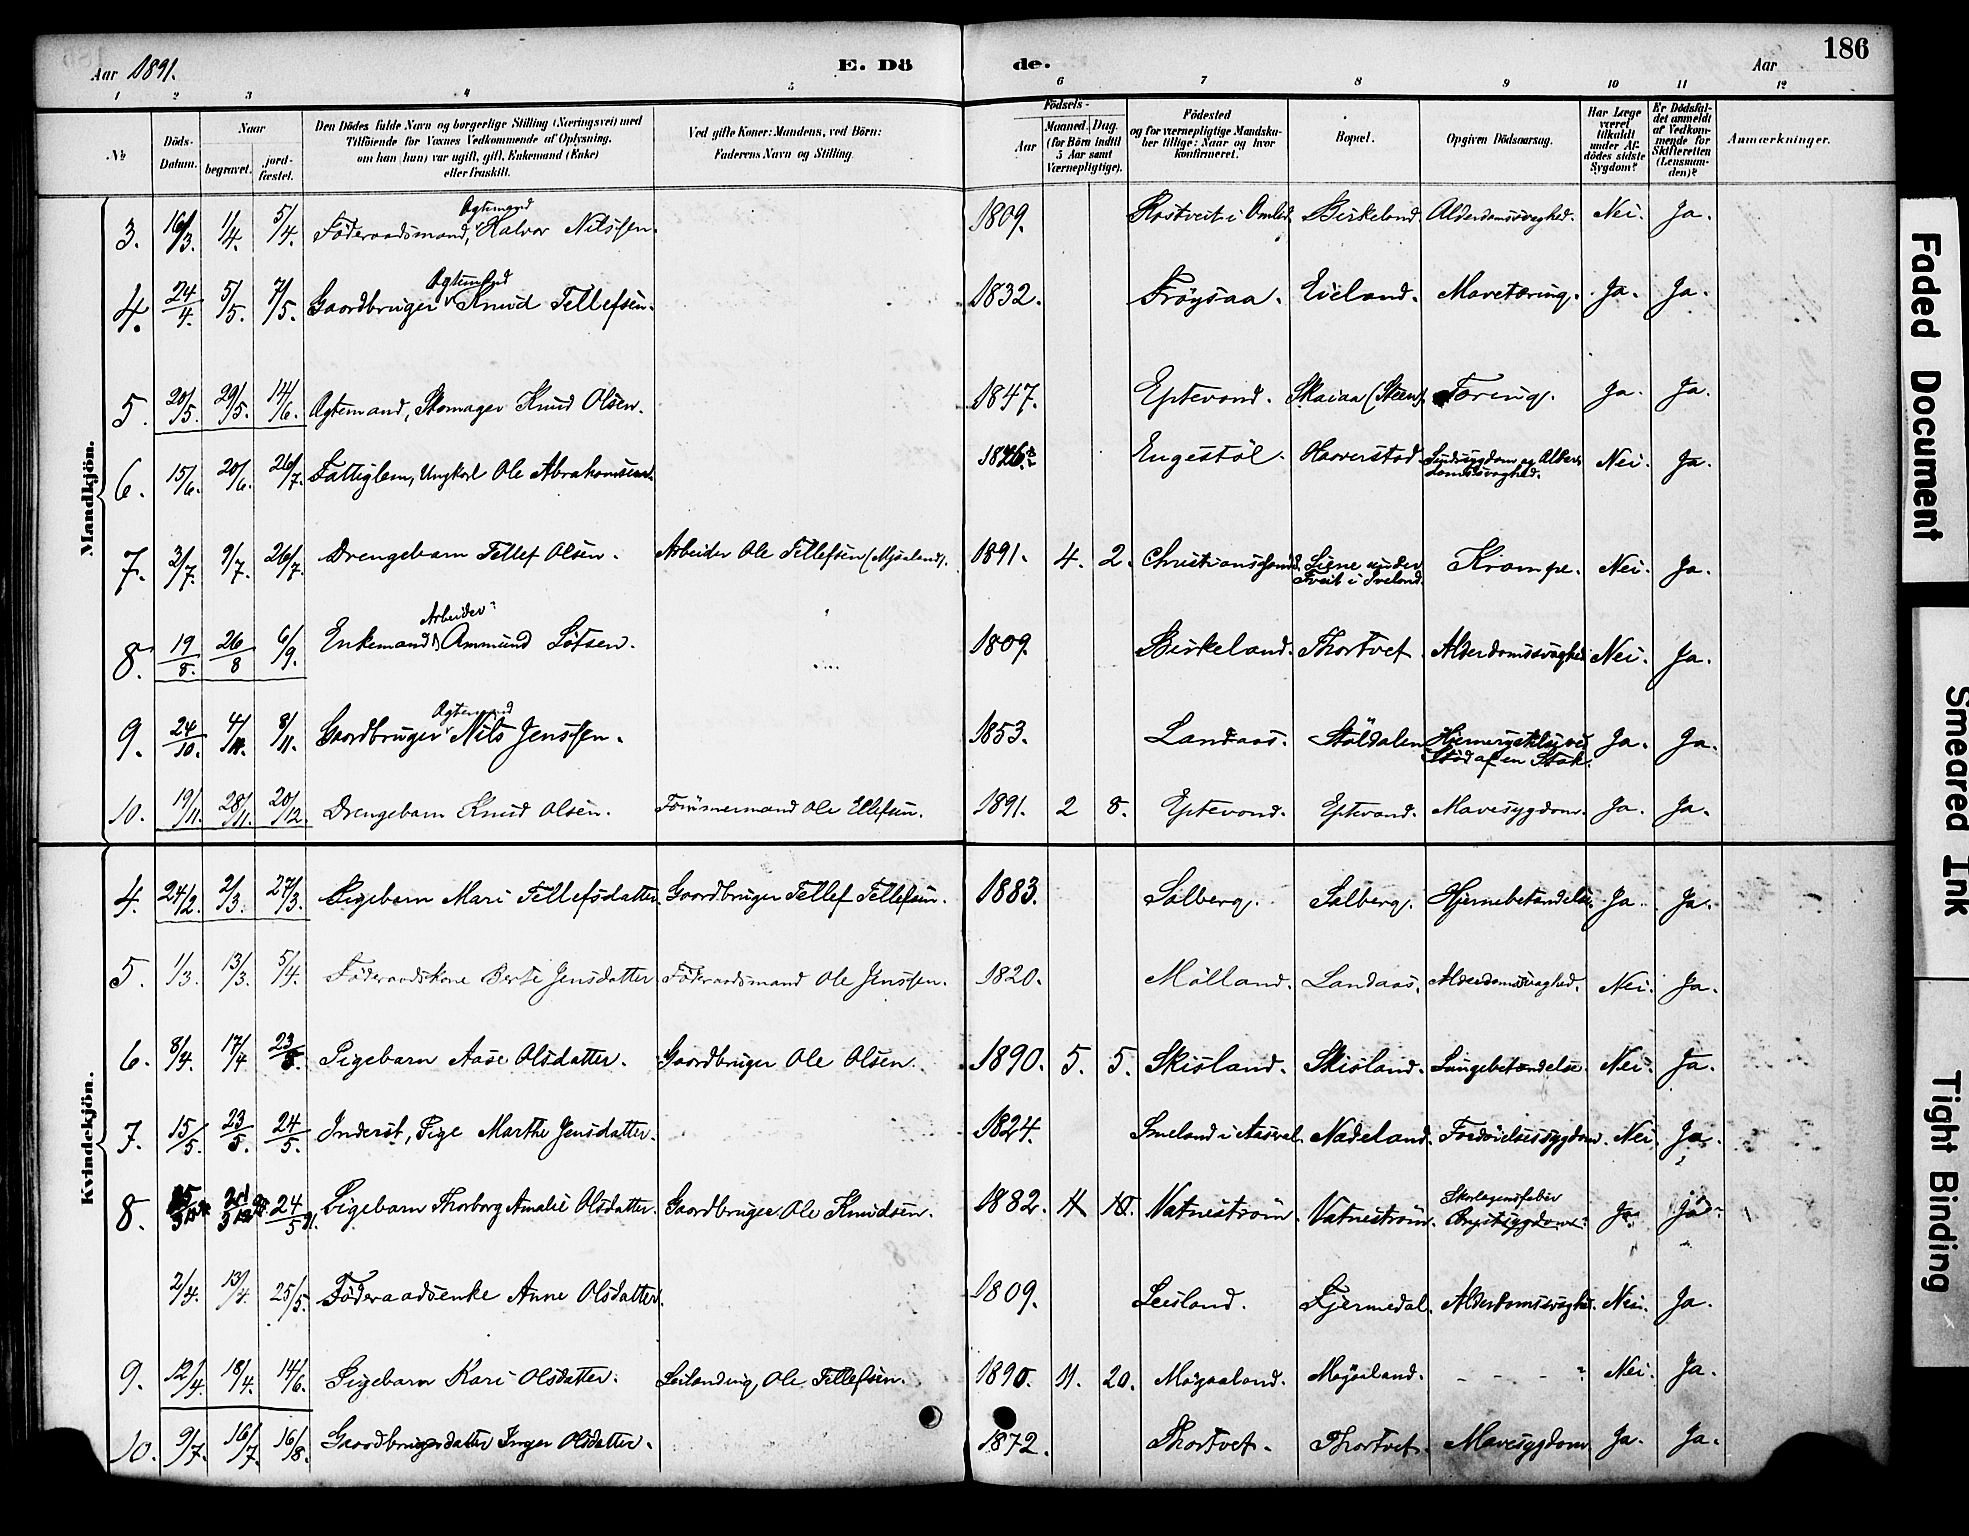 Aar 1891. E. Dö de. Aar 186
1 2 3 4 5 6 7 8 9 10 11 12
№ Döds-Datum. Naar begravet. jord-fæstet. Den Dödes fulde Navn og borgerlige Stilling (Næringsvei) med Tilföiende for Voxnes Vedkommende af Oplysning, om han (hun) var ugift, gift, Enkemand (Enke) eller fraskilt. Ved gifte Koner: Mandens, ved Börn: Faderens Navn og Stilling. Födsels- Aar Maaned. Dag. (for Börn indtil 5 Aar samt Værnepligtige). Födested og for værnepligtige Mandskaber tillige: Naar og hvor konfirmeret. Bopæl. Opgiven Dödsaarsag. Har Læge været tilkaldt under Afdödes sidste Sygdom? Er Dödsfaldet anmeldt af Vedkommende for Skifteretten (Lensmanden)? Anmærkninger.
Mandkjön.
3. 16/3. 1/4. 5/4. Föderaadsmand, Ægtemand Halvor Nilssen. 1809. Rostveit i Omlid Birkeland. Alderdomssvaghed. Nei. Ja.
4. 24/4. 5/5. 7/5. Gaardbruger Ægtemand Knud Tellefsen. 1832. Fröysaa. Eieland. Mavetæring. Ja. Ja.
5. 20/5. 29/5. 14/6. Ægtemand, Skomager Knud Olsen. 1847. Eptevand. Skaiaa (Steen). Tæring. Ja. Ja.
6. 15/6. 20/6. 26/7. Fattiglem, Ungkarl Ole Abrahamsen. Engestöl. Haaverstad. Sindssygdom og Alderdomssvaghed. Nei. Ja.
7. 3/7. 9/7. 26/7. Drengebarn Tellef Olsen. Arbeider Ole Tellefsen (Mjaaland). 1891. 4. 2. Christianssand. Liene under Tveit i Iveland. Krampe. Nei. Ja.
8. 19/8. 26/8 6/9. Enkemand, Arbeider Ammund Lötsen. 1809. Birkeland. Thortvet. Alderdomssvaghed Nei. Ja.
9. 24/10. 4/11. 8/11. Gaardbruger Ægtemand Nils Jenssen. 1853. Landaas. Stöldalen Hjernerystelse ved Stöd af en Stok. Ja. Ja.
10. 19/11. 28/11. 20/12. Drengebarn Knud Olsen. Tömmermand Ole Ellefsen. 1891. 2 8. Eptevand. Eptevand. Mavesygdom. Ja. Ja.
Kvindekjön.
4. 24/2. 2/3. 27/3. Pigebarn Mari Tellefsdatter. Gaardbruger Tellef Tellefsen. 1883. Solberg. Solberg. Hjernebetændelse. Ja. Ja.
5. 1/3. 13/3. 5/4. Föderaadskone Berte Jensdatter Föderaadsmand Ole Jenssen. 1820. Mölland. Landaas. Alderdomssvaghed. Nei. Ja.
6. 8/4. 17/4 23/5. Pigebarn Aase Olsdatter. Gaardbruger Ole Olsen. 1890. 5. 5. Skisland. Skisland. Lungebetændelse. Nei. Ja.
7. 15/5. 23/5. 24/5. Inderst, Pige Marthe Jensdatter. 1824. Smeland i Aaseral. Nædeland. Fordöielsessygdom. Nei. Ja.
8. 24/5 91. Pigebarn Thorborg Amalie Olsdatter. Gaardbruger Ole Knudsen. 1882. 11 10. Vatneström. Vatneström. Skarlagensfeber Brystsygdom. Ja. Ja.
2/4. 13/4. 25/5. Föderaadsenke Anne Olsdatter. 1809. Leisland. Fjermedal. Alderdomssvaghed. Nei. Ja.
9. 12/4. 18/4. 14/6. Pigebarn Kari Olsdatter. Leilænding Ole Tellefsen. 1890. 11. 20. Mögaaland. Mögaaland. - - - ? Nei. Ja.
10. 9/7. 16/7. 16/8. Gaardbrugerdatter Inger Olsdatter. 1872. Thortvet. Thortvet. Mavesygdom Ja. Ja.
Faded Document
Smeared Ink
Tight Binding